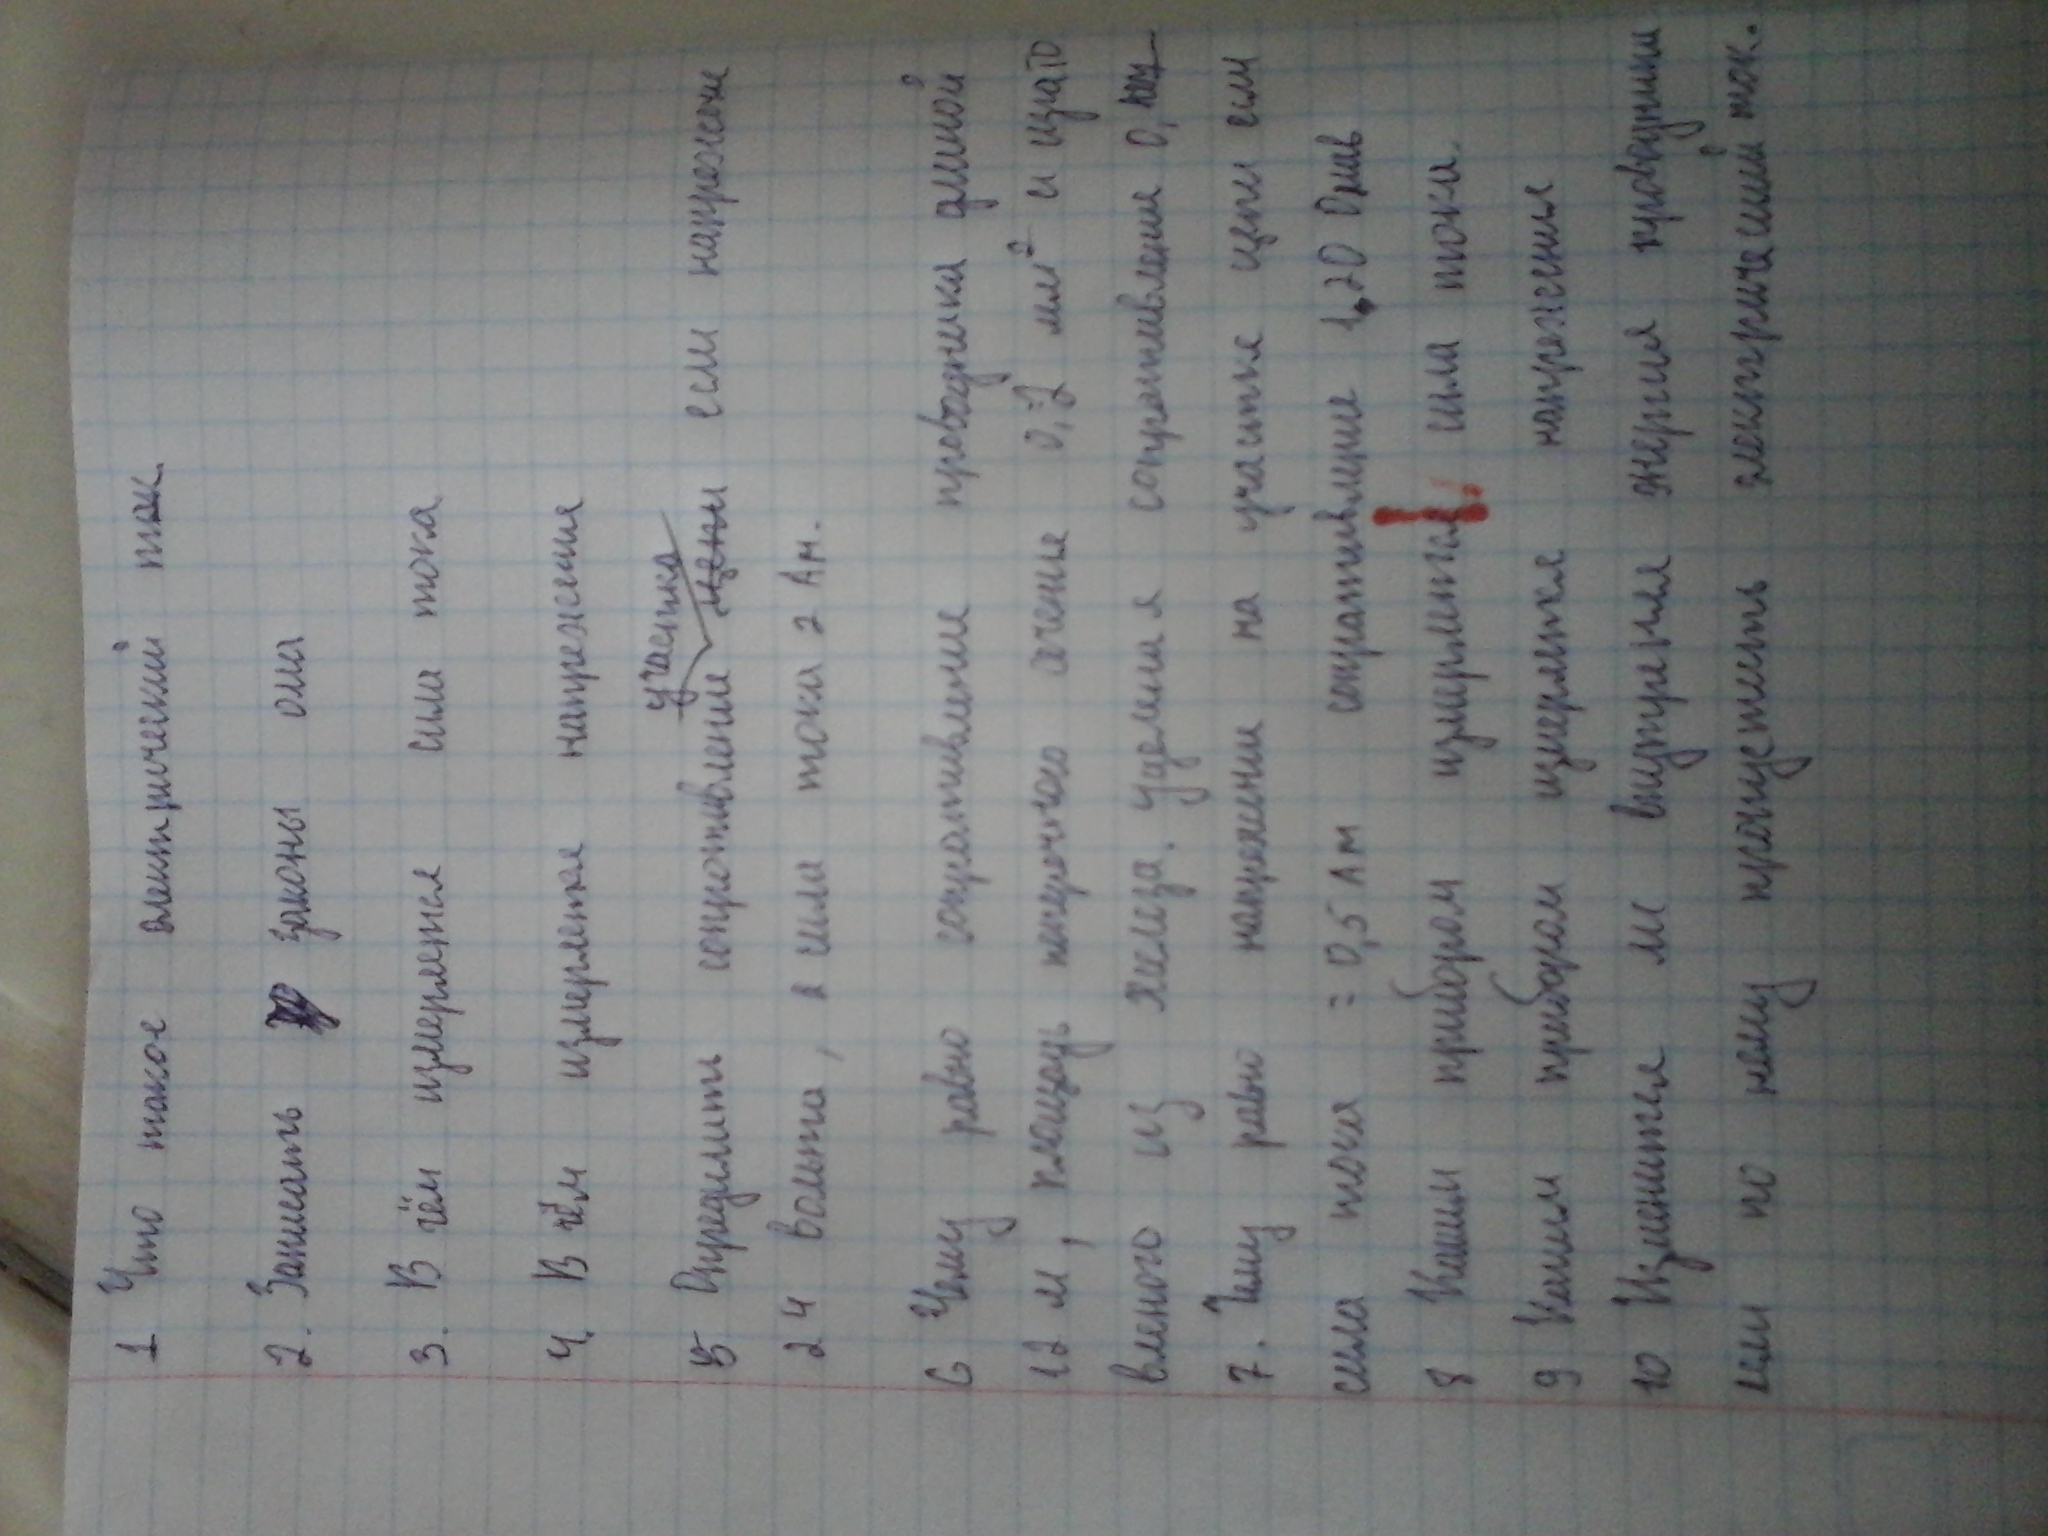 1 Что такое электрический ток.
2. Записать законы ома
3. В чём измеряется сила тока
4. В чём измеряется напрежения
участка
5 Определить сопротивление цепи если напрежени
24 вольта, а сила тока 2 Ам.
6 Чему равно сопративление проводника длиной
12 м, площадь поперечного сечение мм² и изгото
вленого из железа. Удельная сопративление 0,
7. Чему равно напрежении на участке цепи если
сила тока = 0,5 Ам сопративление 120 Омав
8 Каким прибором измеряется сила тока.
9 Каким прибором измеряется напрежения
10 Изменится ли внутреняя энергия проводника
если по нему пропустить электрический ток.